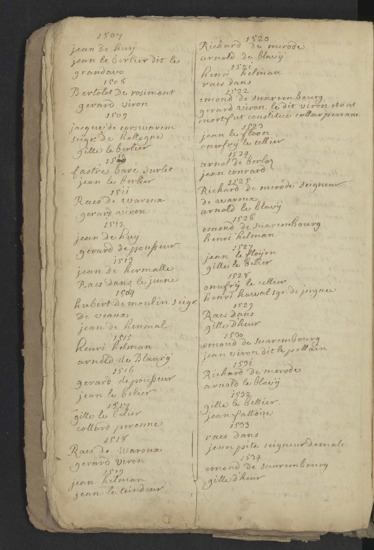 1507
jean de huij
jean le berlier dit le
grandavo
1508
Bertolet de rosimont
gerard viron
1509
jacque de corswarem
seigr de
gille le berlier
1510
Lastre bare surlet
jean le berlier
1511
Raes de waroux
gerard viron
1512
jean de huij
gerard de pousseur
1513
jean de hermalle
Raes dans le jeune
1514
hubert de moulin seigr
de
jean de
1515
henri helman
arnold de Blavrij
1516
gerard de pousseur
jean le belier
1517
gille le belier
collard peronne
1518
Raes de Waroux
gerard viron
1519
jean helman
jean le teindeur
1520
Ricard de merode
arnold de blavij
1521
henri helman
raes dans
1522
emond de suarembourg
gerard viron le dit viron etant
mort fut constitue
1523
jean le
onofrij le cellier
1524
arnol de berloz
jean conrard
1525
Richard de merode seigneur
de waroux
arnold le blavij
1526
emond de suarembourg
henri helman
1527
jean le
gille le belier
1528
onufrij le cellier
henri
1529
Raes dans
gille dheur
1530
emond de suarembourg
jean viron dit le
1531
Richard de merode
arnold le blavij
1532
gille le bellier
jean
1533
raes dans
jean
1534
emond de suarembourg
gille dheur